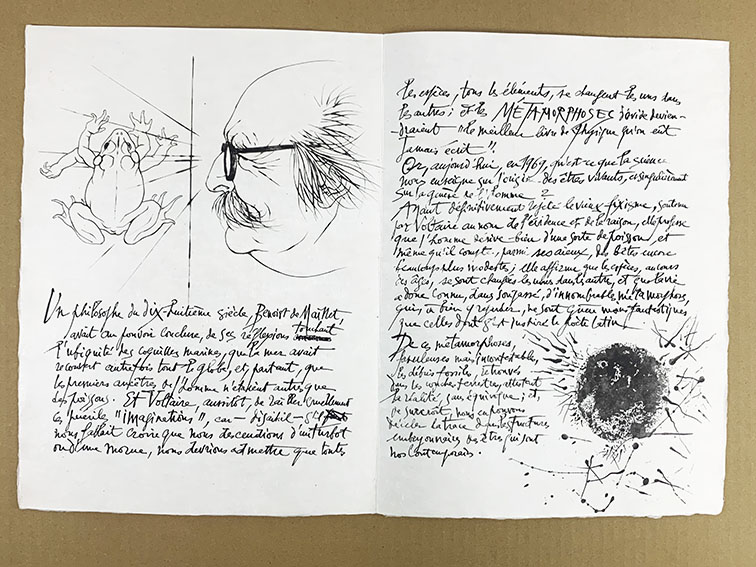 Un philosophe du dix-huitième siècle, Benoist de Maillet,
avait cru pouvoir conclure, de ses réflexions touchant
l'ubiquité des coquilles marines, que la mer avait
recouvert autrefois tout le globe, et, partant, que
les premiers ancêtres de l'homme n'étaient autres que
des poissons. Et Voltaire aussitôt, de railler cruellement
ces puérile "imaginations", car — disait-il — s'il
nous fallait croire que nous descendions d'un turbot
ou d'une morue, nous devrions admettre que toutes
les espèces, tous les éléments, se changent les uns dans
les autres; et les METAMORPHOSES d'Ovide devien-
draient "le meilleur livre de Physique qu'on eût
jamais écrit".
Or, aujourd'hui, en 1969, qu'est-ce que la science
nous enseigne sur l'origine des êtres vivants, et singulièrement
sur la genèse de l'homme?
Ayant définitivement rejeté le vieux fixisme, soutenu
par Voltaire au nom de l'évidence et de la raison, elle professe
que l'homme dérive bien d'une sorte de poisson, et
même qu'il compte, parmi ses aïeux, des bêtes encore
beaucoup plus modestes; elle affirme que les espèces, au cours
des âges, se sont changées les unes dans l'autre, et que la vie
a donc connu, dans son passé, d'innombrables métamorphoses,
qui, à bien y regarder, ne sont guère moins fantastiques
que celles dont s'est inspiré le poète latin.
De ces métamorphoses,
fabuleuses mais incontestables,
les débris fossiles, retrouvés
dans les couches terrestres, attestent
la réalité, sans équivoque; et,
de surcroît, nous en pouvons
déceler la trace dans les structures
embryonnaires des êtres qui sont
nos contemporains.